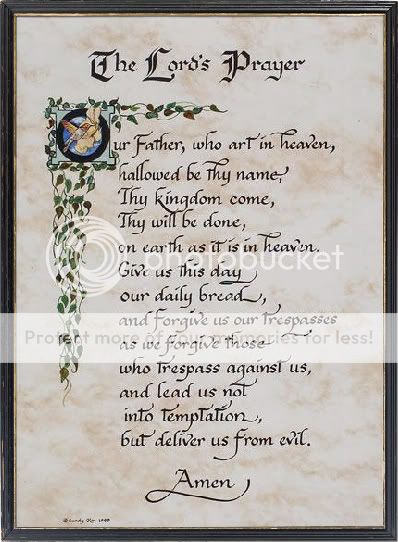 The Lord's Prayer
Our Father, who art in heaven,
hallowed be thy name,
Thy kingdom come,
Thy will be done,
on earth as it is in heaven.
photobucket
Give us this day
our daily bread,
and forgive us our trespasses
Protect more of your memories for less!
as we forgive those
who trespass against us,
and lead us not
into temptation,
but deliver us from evil.
Amen